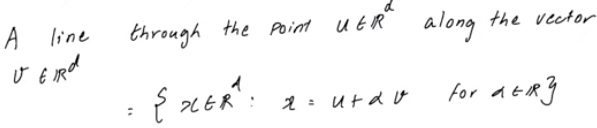 A line through the point u ∈ ℝᵈ along the vector
v ∈ ℝᵈ
= { x ∈ ℝᵈ : x = u + α v for α ∈ ℝ }